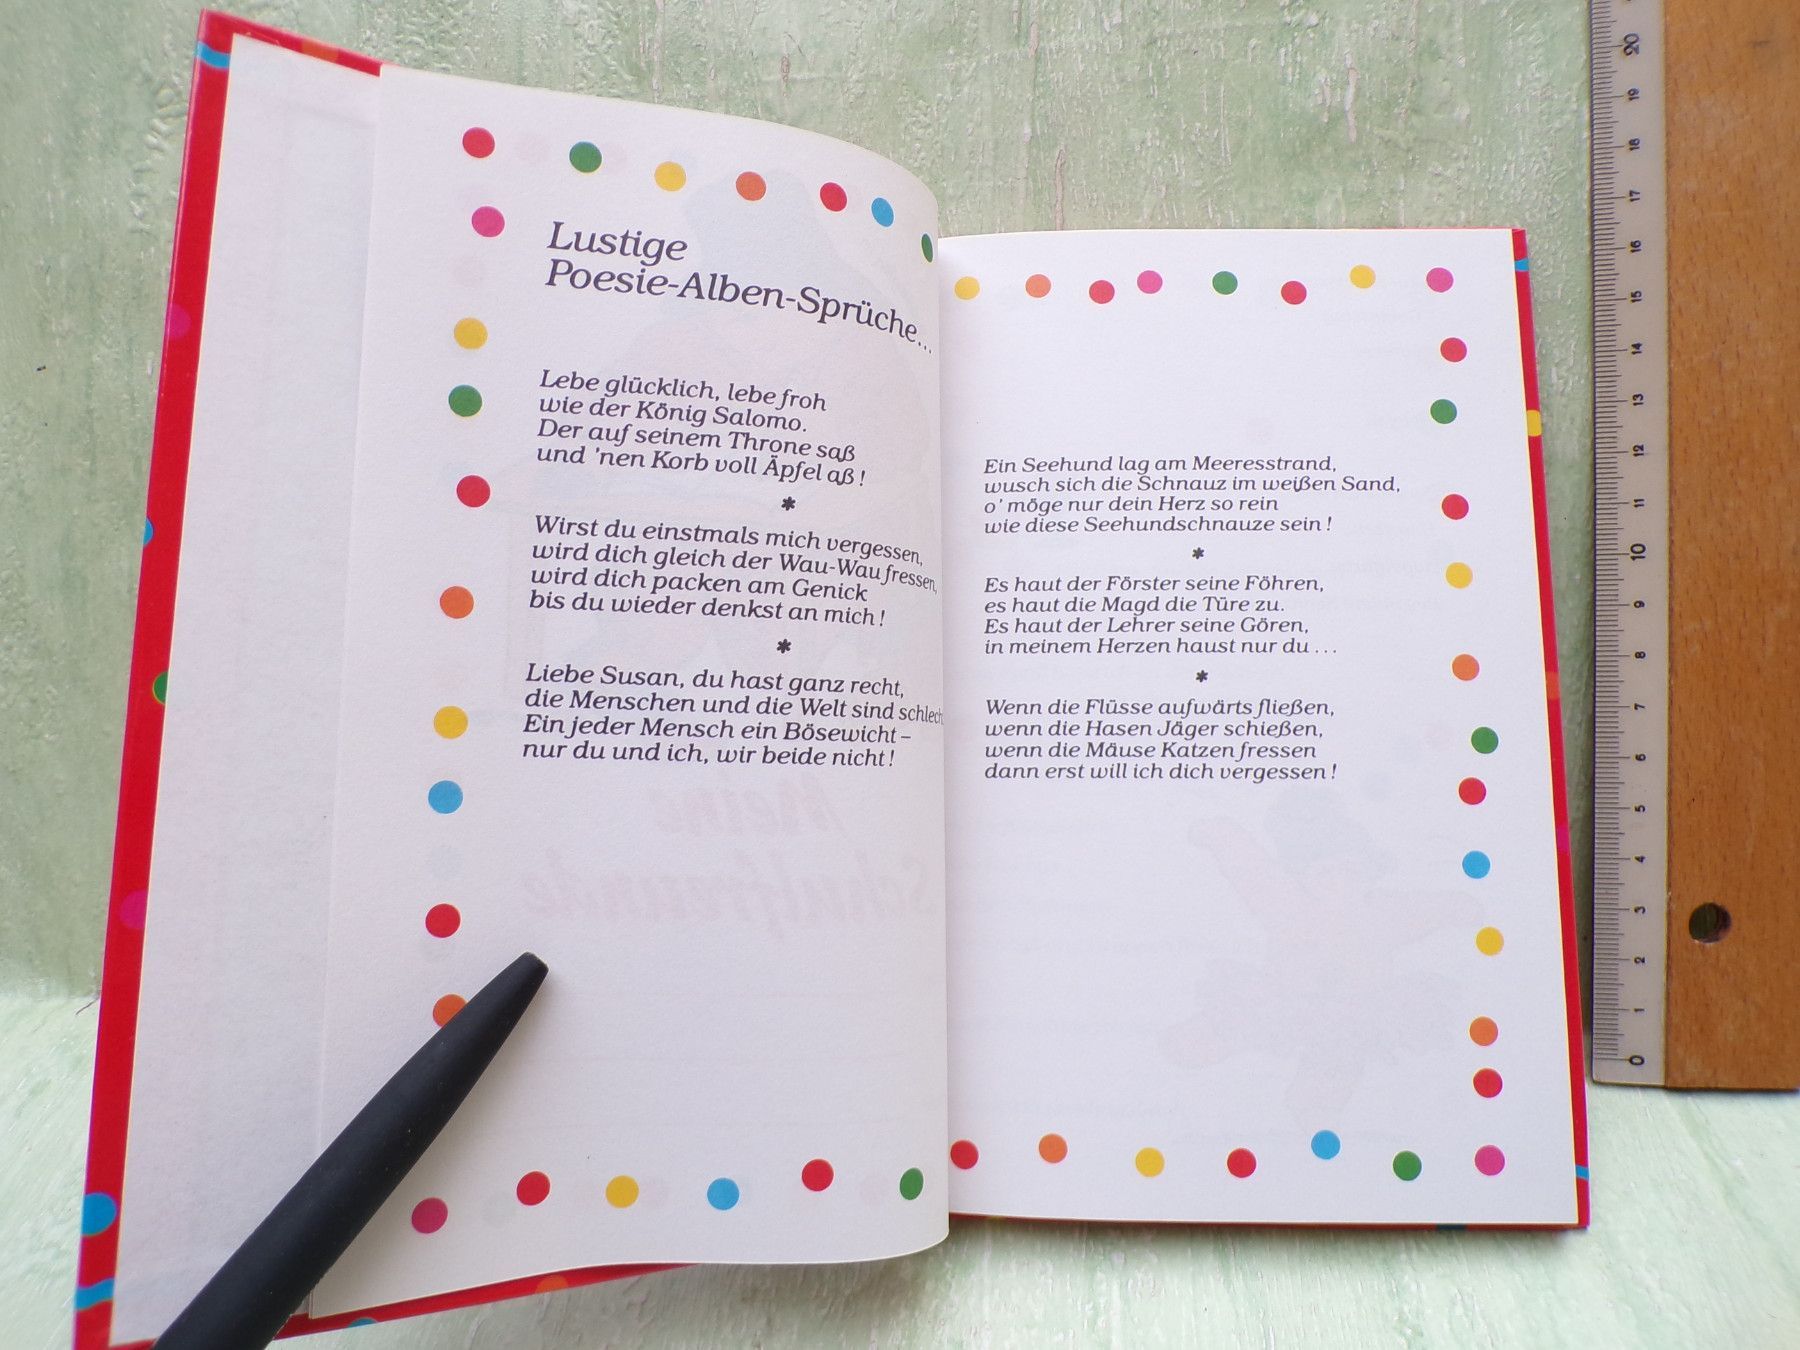 Lustige
Poesie-Alben-Sprüche...
Lebe glücklich, lebe froh
wie der König Salomo.
Der auf seinem Throne saß
und 'nen Korb voll Äpfel aß!
*
Wirst du einstmals mich vergessen,
wird dich gleich der Wau-Wau fressen,
wird dich packen am Genick
bis du wieder denkst an mich!
*
Liebe Susan, du hast ganz recht,
die Menschen und die Welt sind schlech
Ein jeder Mensch ein Bösewicht –
nur du und ich, wir beide nicht!
Meine
Schulfreunde
Ein Seehund lag am Meeresstrand,
wusch sich die Schnauz im weißen Sand,
o' möge nur dein Herz so rein
wie diese Seehundschnauze sein!
*
Es haut der Förster seine Föhren,
es haut die Magd die Türe zu.
Es haut der Lehrer seine Gören,
in meinem Herzen haust nur du ...
*
Wenn die Flüsse aufwärts fließen,
wenn die Hasen Jäger schießen,
wenn die Mäuse Katzen fressen
dann erst will ich dich vergessen!
20
19
18
17
16
15
14
13
12
11
10
9
8
7
6
5
4
3
2
1
0